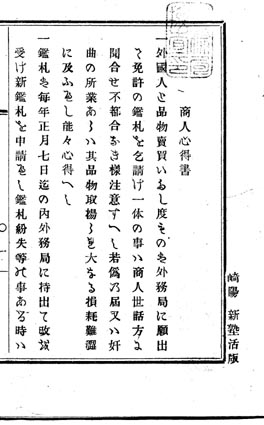 崎陽 新塾活版
商人心得書
一外國人と品物賣買いたし度ものハ外務局に願出
て免許の鑑札を乞請け一体の事ハ商人世話方に
聞合せ不都合なき様注意すへし若偽の届又ハ奸
曲の所業あらハ其品物取揚られ大なる損耗難澀
に及ふへし能々心得へし
一鑑札ハ毎年正月七日迄の内外務局に持出て改を
受け新鑑札を申請へし鑑札紛失等の事ある時ハ